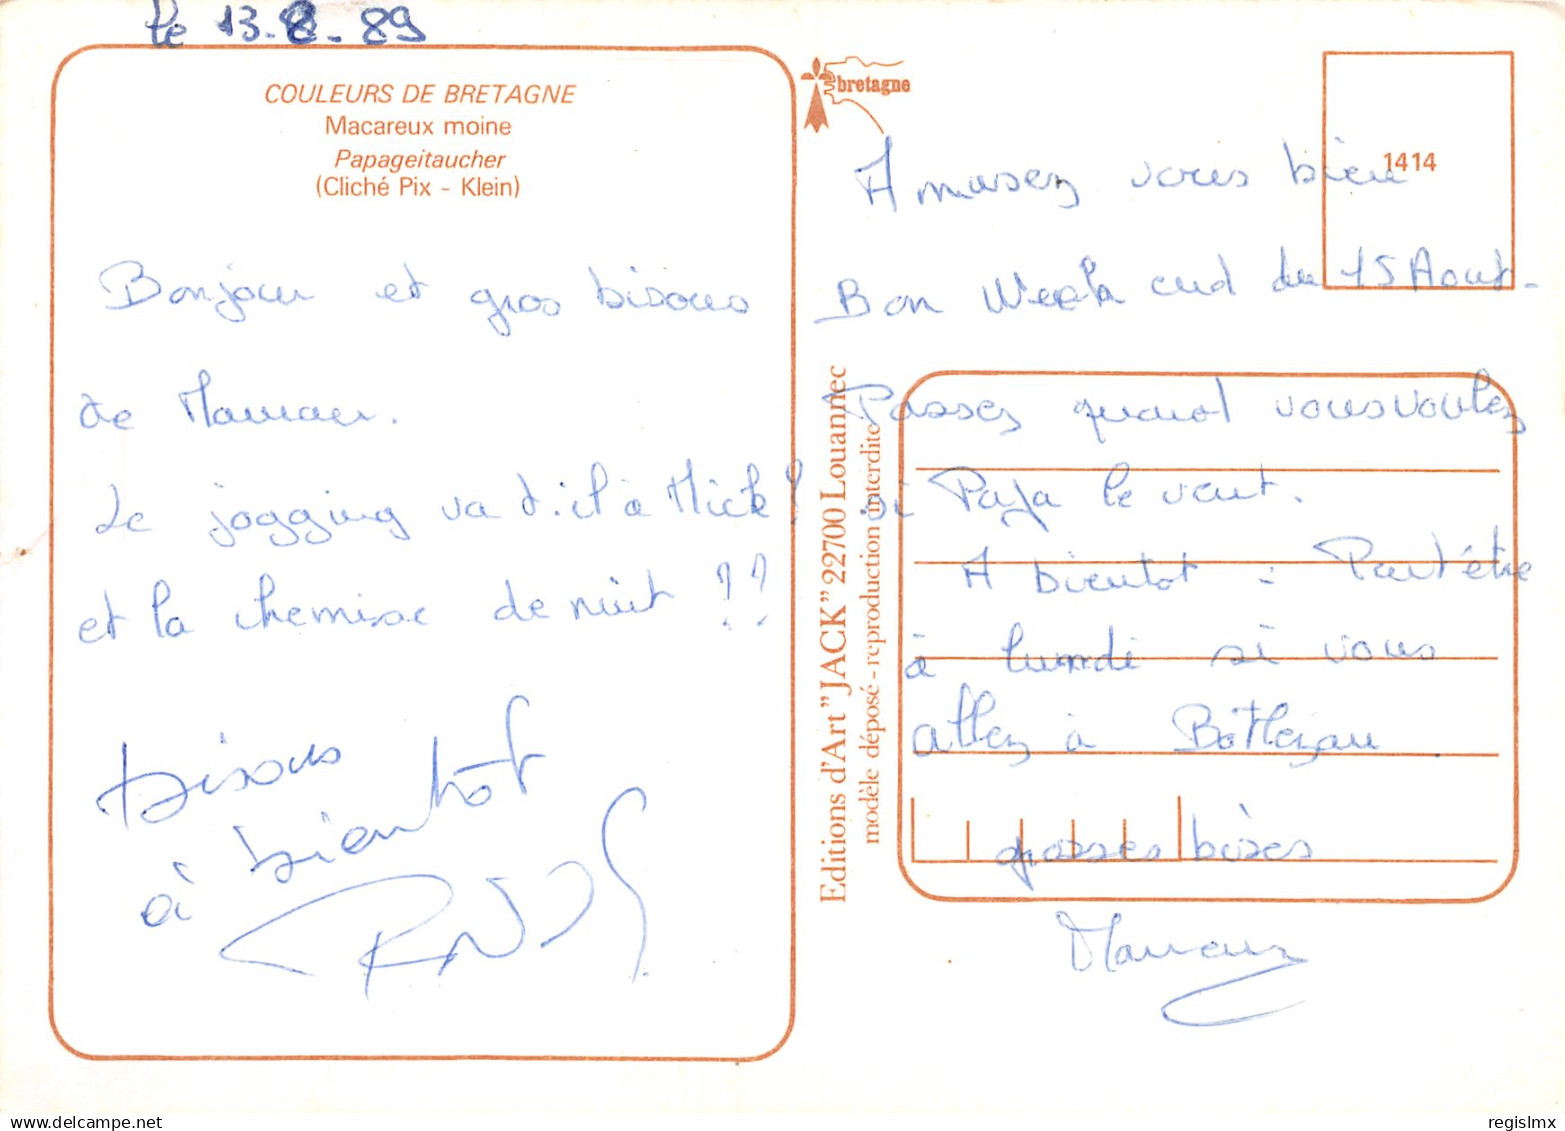 le 13-8-89
COULEURS DE BRETAGNE
Macareux moine
Papageitaucher
(Cliché Pix - Klein)
Bonjour et gros bisous
de Maman.
Le jogging va t'il à Mick?
et la chemise de nuit ??
bisous
à bientôt
bretagne
1414
Editions d'Art "JACK" 22700 Louannec
modèle déposé - reproduction interdite
Amusez vous bien
Bon Week end du 15 Aout.
Passez quand vous voulez
si Papa le veut.
A bientot - Peut être
à lundi si vous
allez à
grosses bises
Maman
regislmx